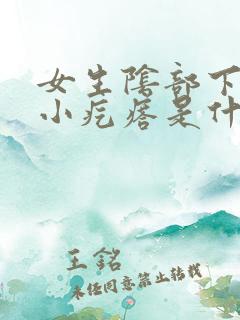 女生陰部下
小疙瘩是什
王銘
未经同意禁止转载